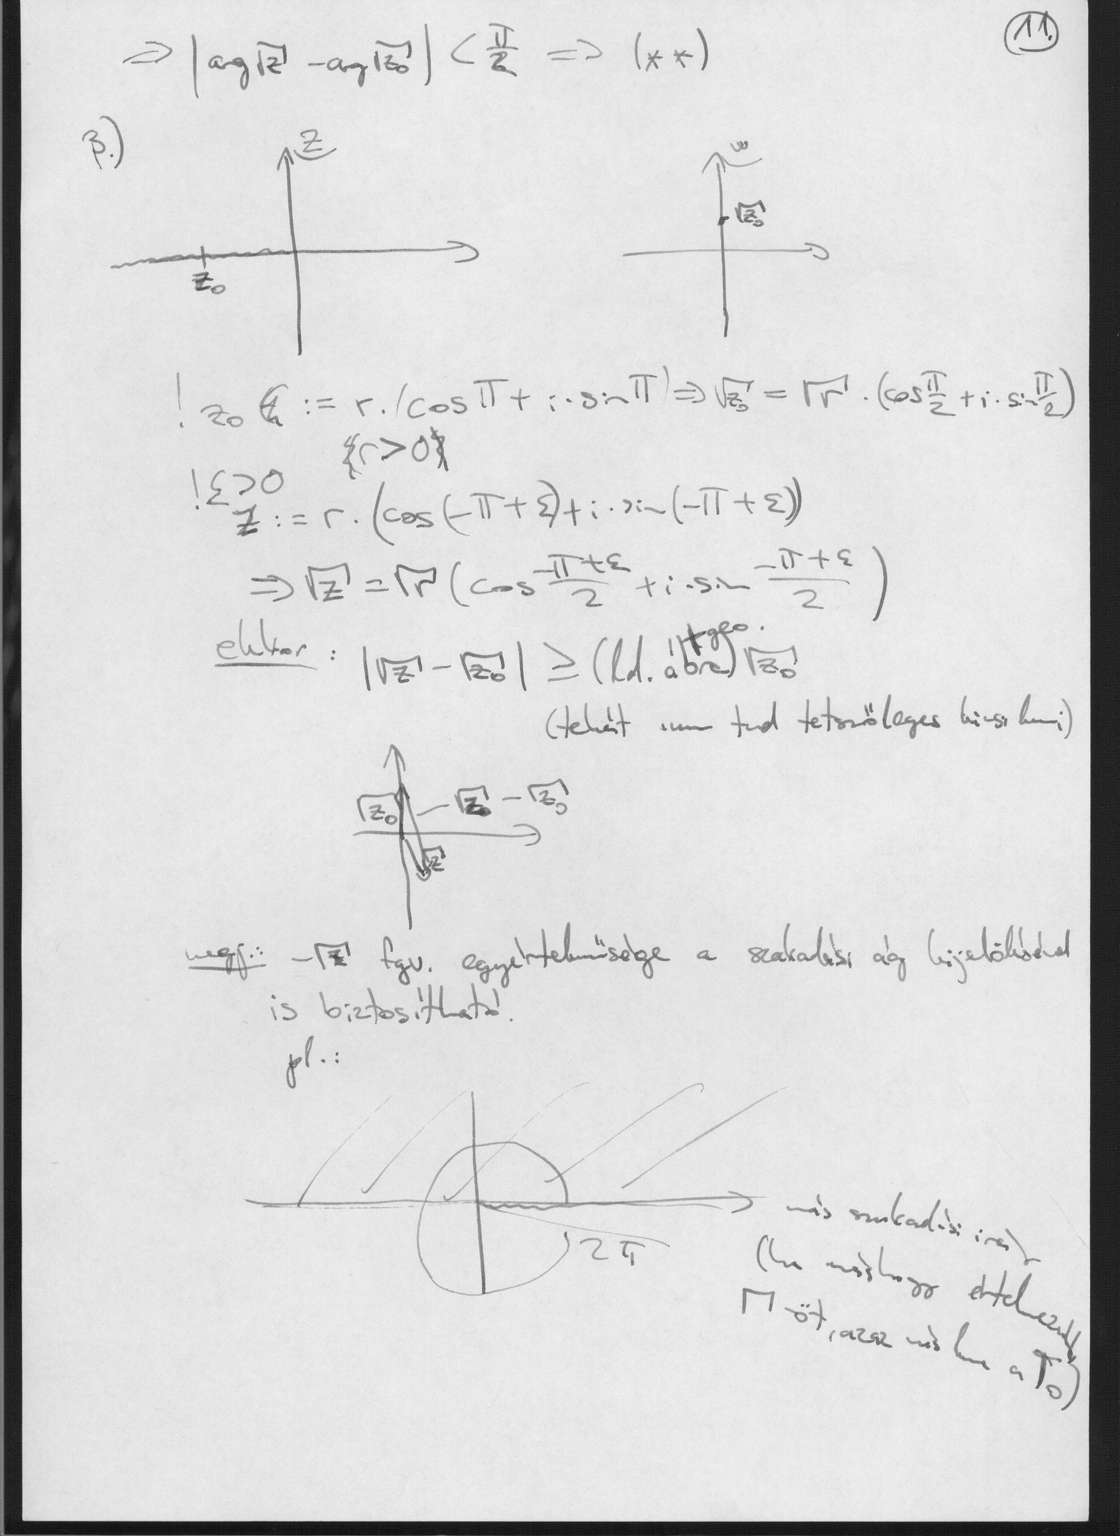 11.
⇒ |arg√z - arg√z₀| < π/2 ⇒ (**)
β.)
z
w
√z₀
z₀
! z₀ := r·(cos π + i·sin π) ⇒ √z₀ = √r · (cos π/2 + i·sin π/2)
{r>0}
! ε>0
z := r·(cos(-π+ε) + i·sin(-π+ε))
⇒ √z = √r (cos (-π+ε)/2 + i·sin (-π+ε)/2)
ekkor: |√z - √z₀| ≥ (ld. ábra + geo.) √z₀
(tehát nem tud tetszőleges kicsi lenni)
√z₀
√z₀ - √z₀
√z
megj.: -√z fgv. egyértelműsége a szakadási ág kijelölésével
is biztosítható.
pl.:
2π
más szakadási irány
(ha máshogy értelmezzük
√-öt, azaz más lenne a T₀)